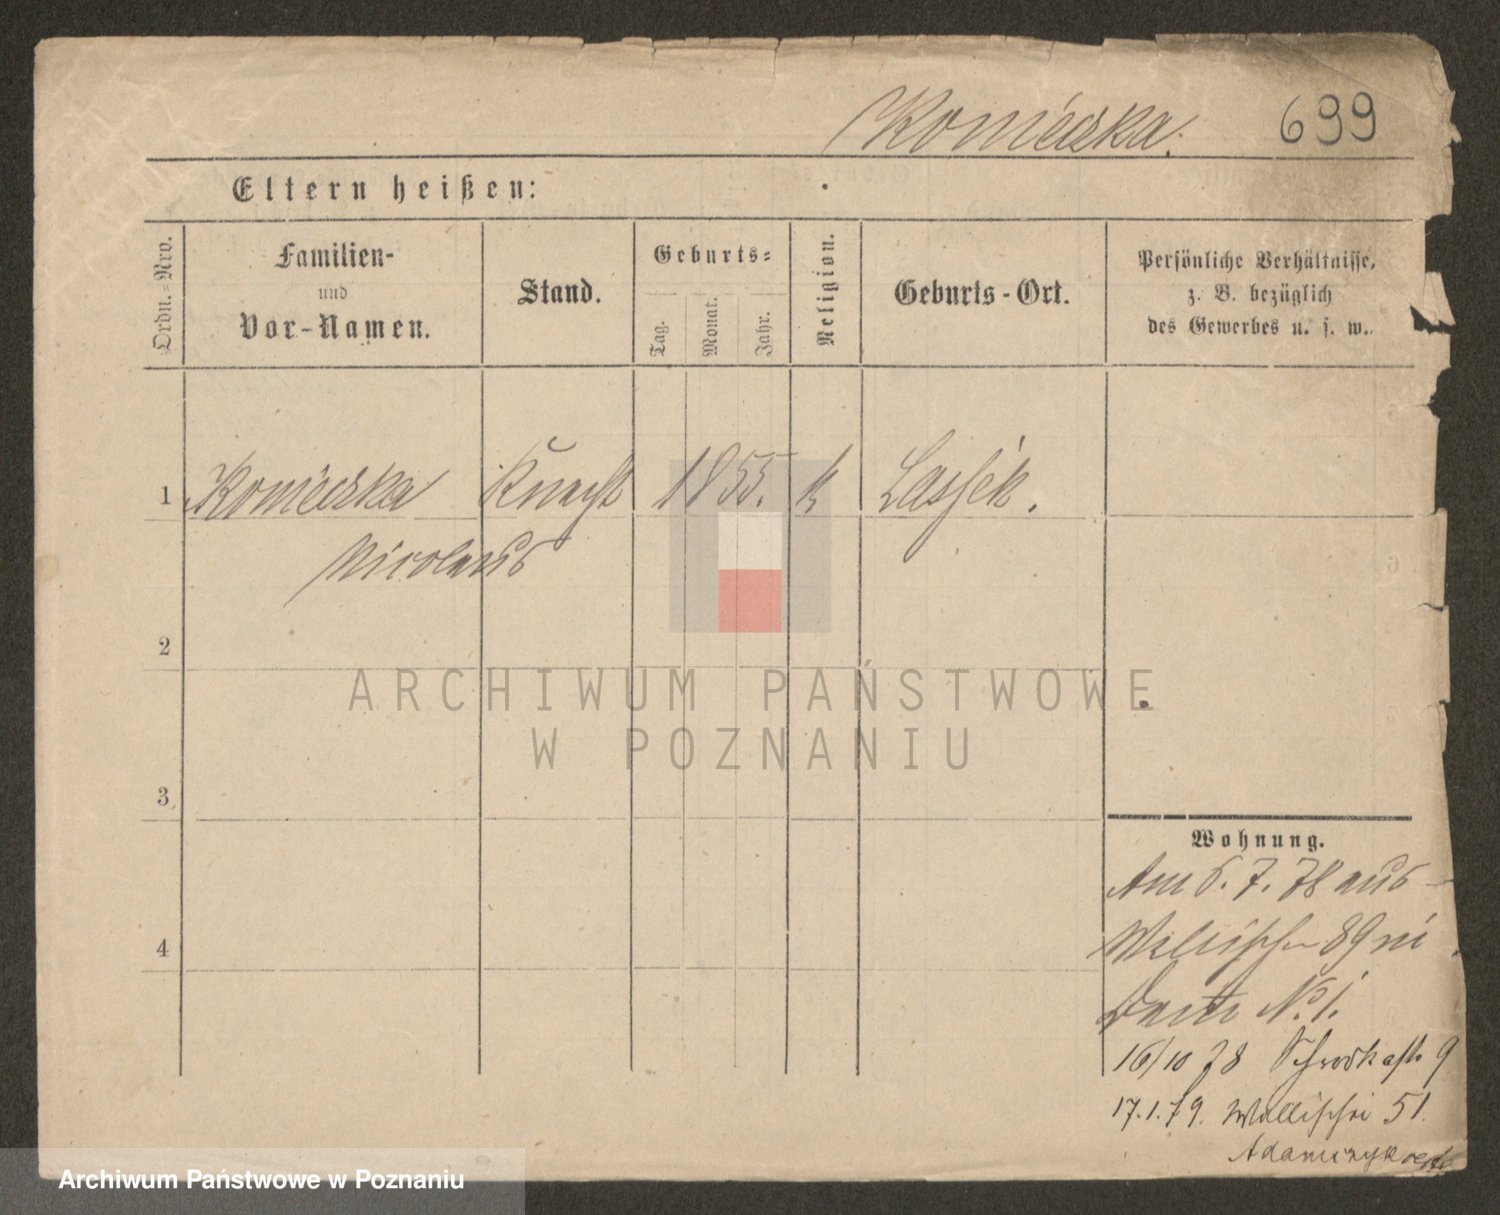 Konieczka. 699
Eltern heißen:
Ordn.-Nro.
Familien-
und
Vor-Namen.
Stand.
Geburts-
Tag.
Monat.
Jahr.
Religion.
Geburts-Ort.
Persönliche Verhältnisse,
z. B. bezüglich
des Gewerbes u. s. w.
1 Konieczka Knecht 1855. k Lassek.
Nicolaus
2
3
4
ARCHIWUM PAŃSTWOWE
W POZNANIU
Wohnung.
Am 6. 7. 78 aus
Wallischei 89 in
No. 1.
16/10 78 Schrodkastr 9
17.1.79. Wallischei 51.
Adamczyk
Archiwum Państwowe w Poznaniu